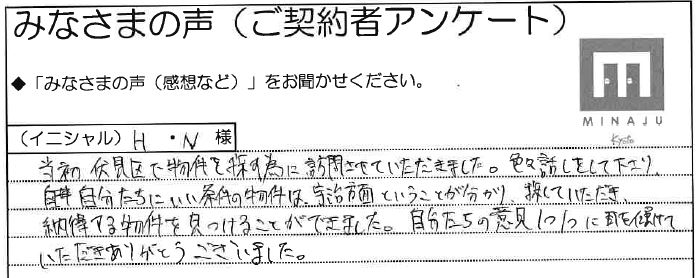 みなさまの声（ご契約者アンケート）
◆「みなさまの声（感想など）」をお聞かせください。
MINAJU
Kyoto
（イニシャル）H ・N 様
当初 伏見区で物件を探す為に訪問させていただきました。色々話しをして下さり、
自分たちにいい条件の物件は、宇治方面ということが分かり、探していただき、
納得する物件を見つけることができました。自分たちの意見1つ1つに耳を傾けて
いただきありがとうございました。